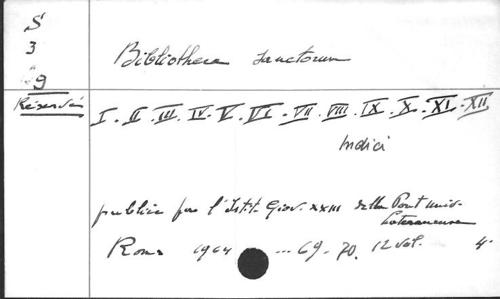 S
3
9
Réservés
Bibliotheca sanctorum
I. II. III. IV. V. VI. VII. VIII. IX. X. XI. XII
Indici
l'Istit. Giov. XXIII della Pont. Univ.
Lateranense
Roma 1964 ... 69-70. 12 vol. 4°